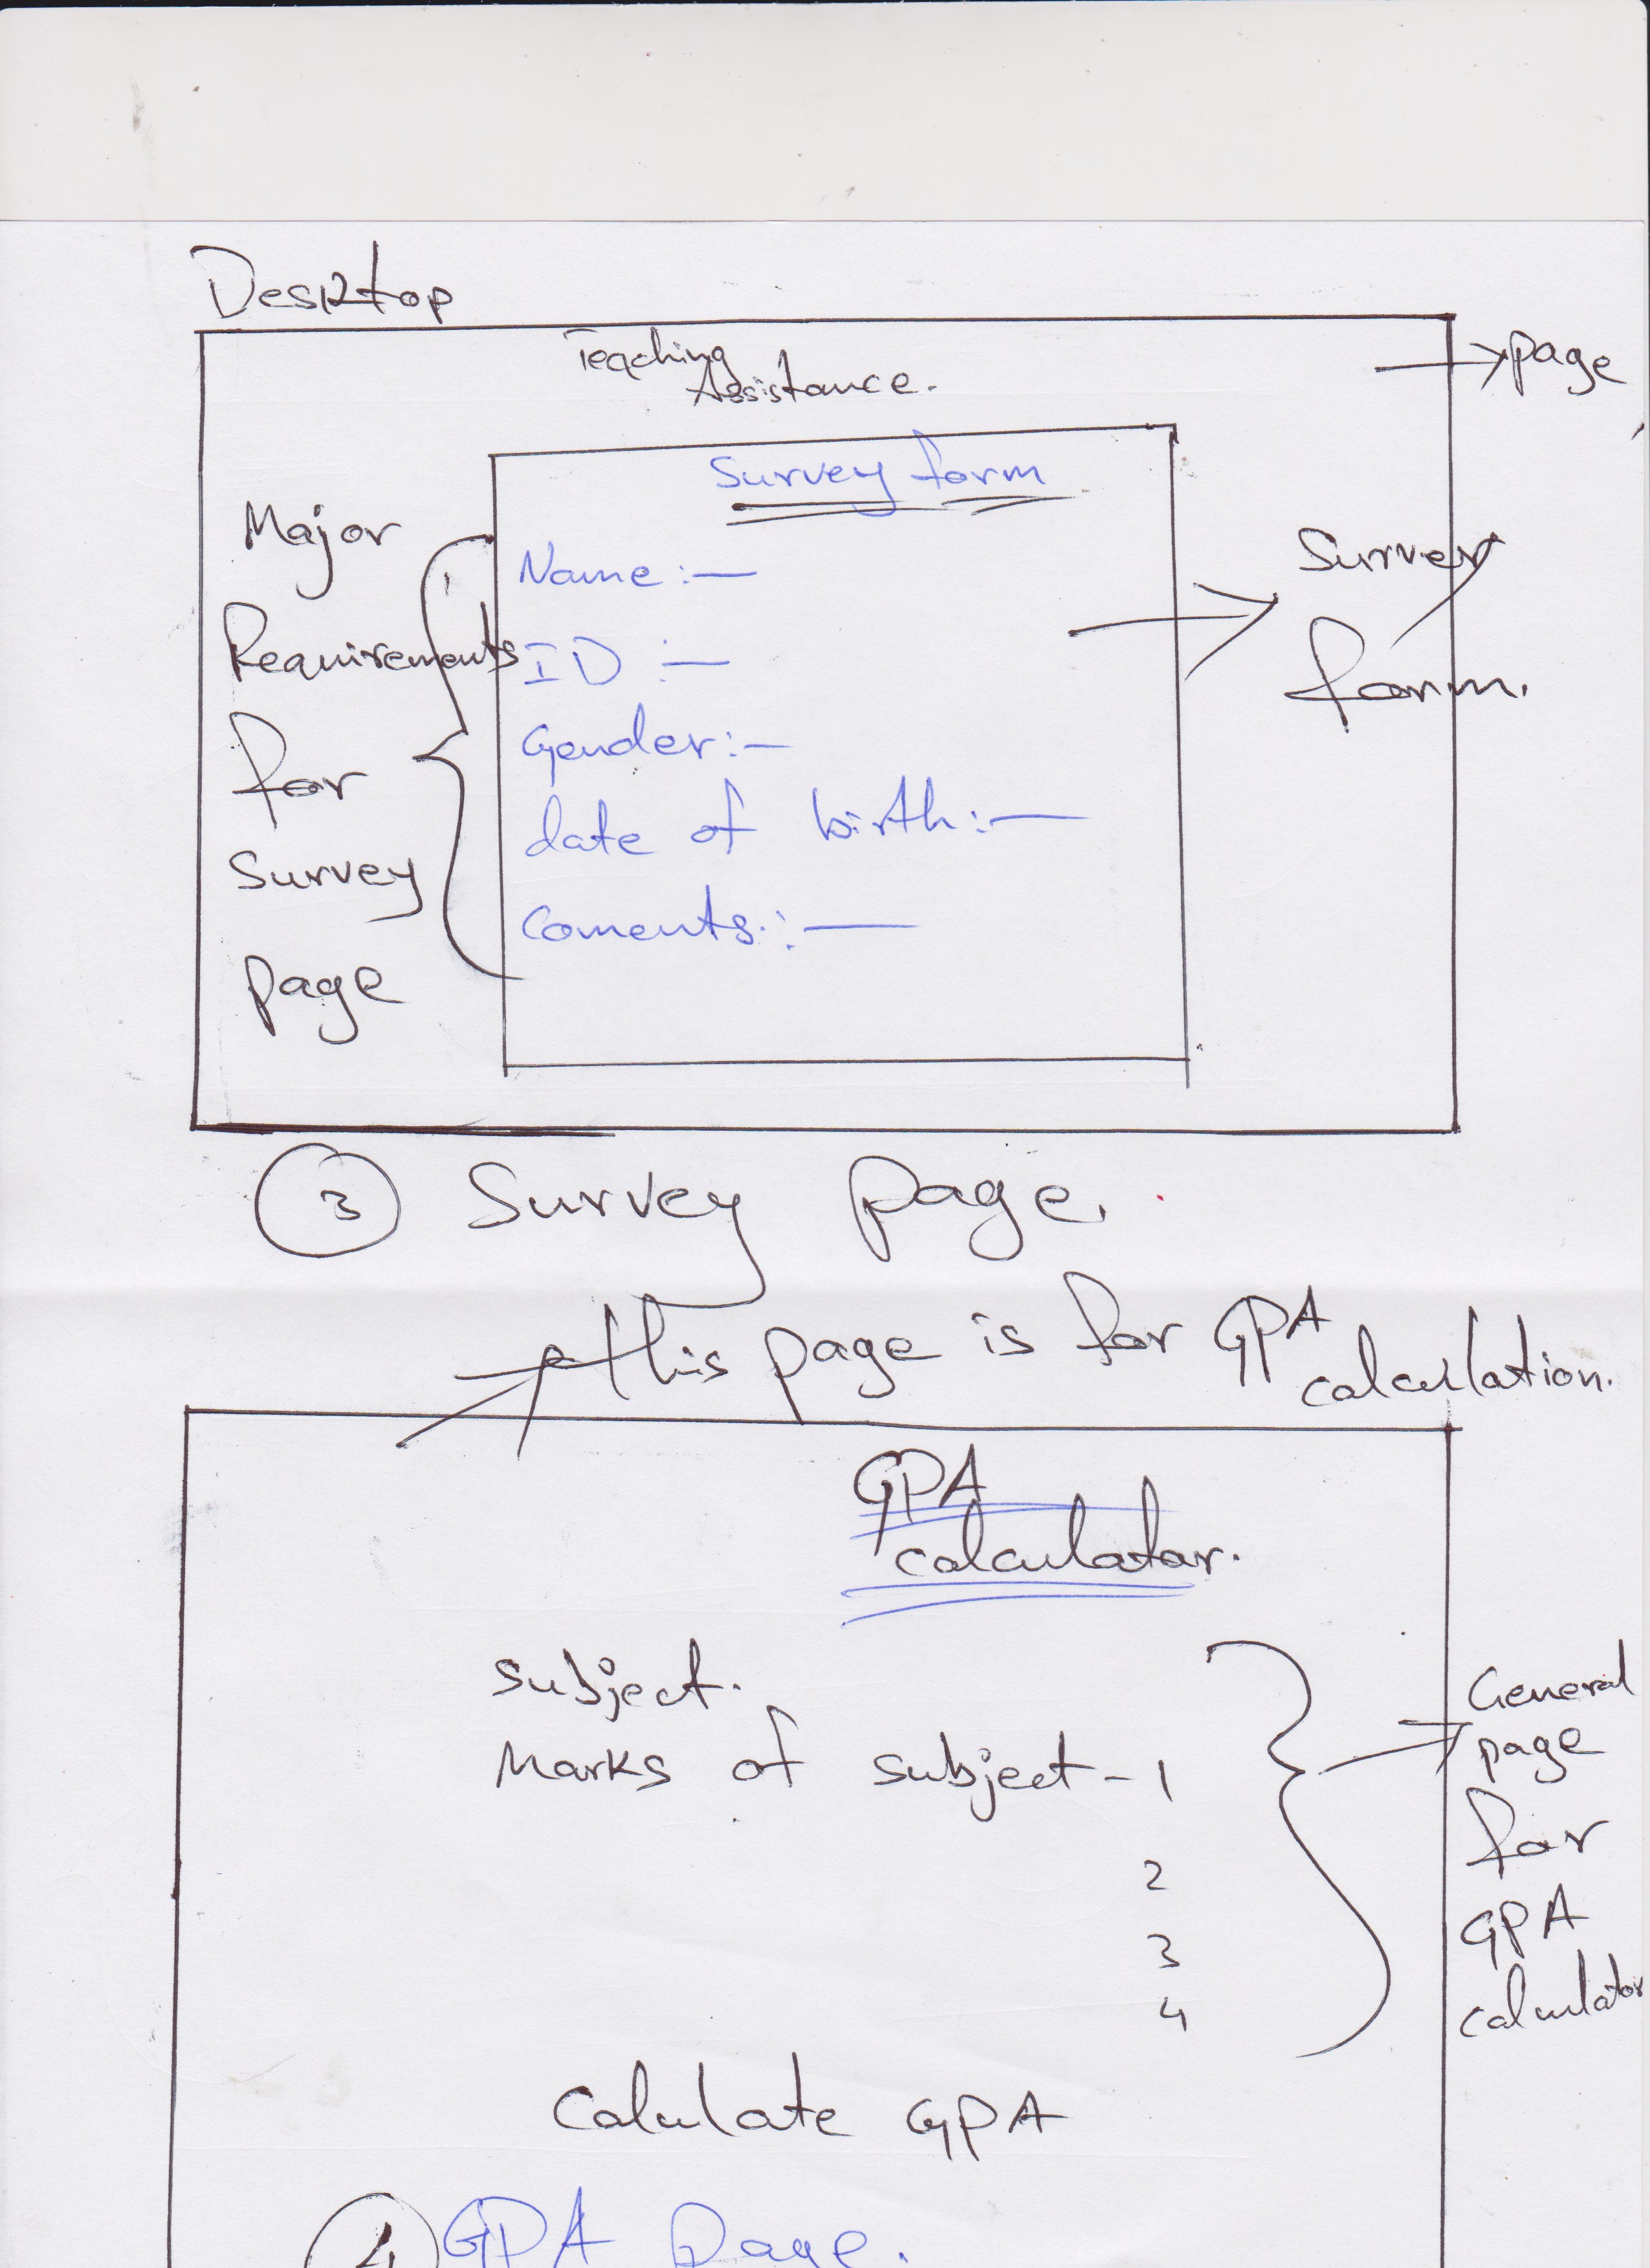 Desktop
Teaching
Assistance.
→ page
Survey form
Major
Requirements
for
Survey
page
Name :—
ID :—
Gender:—
date of birth:—
Coments.:—
Survey
form.
3 Survey page.
this page is for GPA
calculation.
GPA
calculator.
Subject.
Marks of subject - 1
2
3
4
General
page
for
GPA
calculator
Calulate GPA
4 GPA Page.